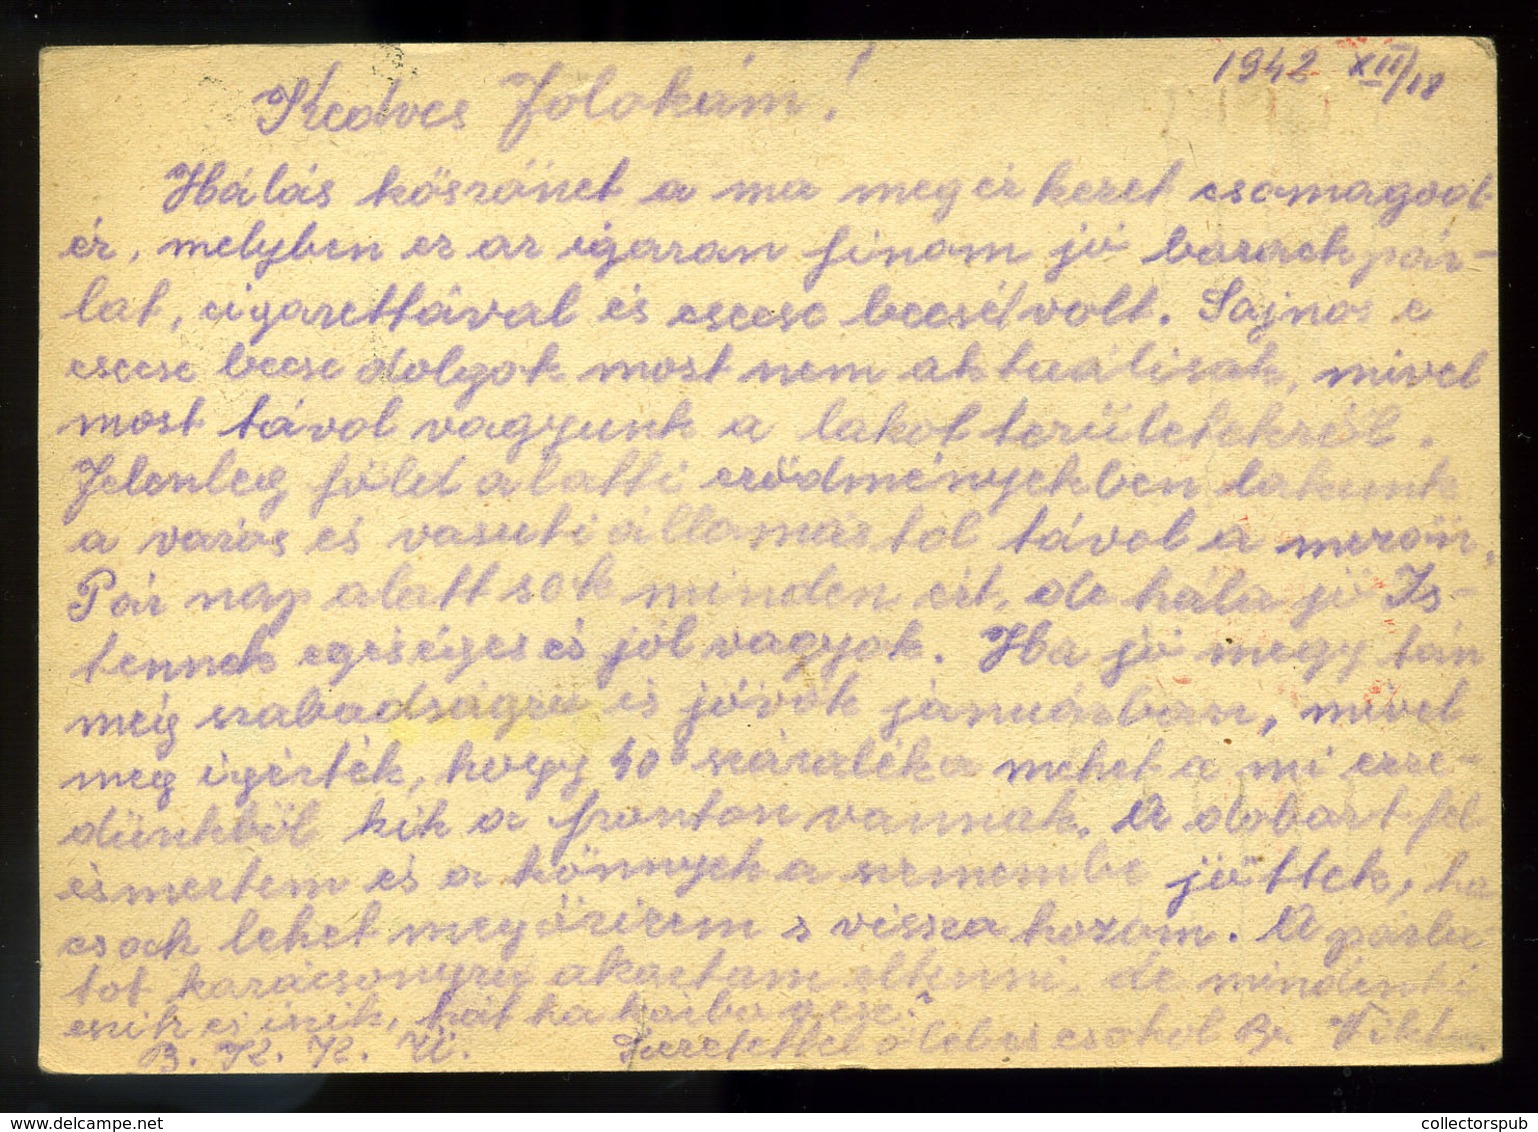 1942 XII/18
Kedves Jolokám!
Hálás köszönet a ma megérkezet csomagod
ér, melyben ez az igazan finom jó barack pár-
lat, cigarettával és csecse becsé volt. Sajnos e
csecse becse dolgok most nem aktuálisak, mivel
most távol vagyunk a lakot területekröl.
Jelenleg föld alatti erődményekben lakunk
a varos és vasuti állomástol távol a mezön.
Pár nap alatt sok minden ért, de hála jó Is-
tennek egeséges és jól vagyok. Ha jó megy tán
még szabadságra is jövök januárban, mivel
meg igérték, hogy 40 százaléka mehet a mi ezre-
dünkböl kik a fronton vannak. A dobozt fel
ésmertem és a könnyek a szemembe jöttek, ha
csak lehet megőrizem s vissza hozom. A párla-
tot karácsonyra akartam eltenni, de mindenki
eszik és iszik, hát ha kárba vesz?
B. K. K. U. Szeretettel ölel és csokol Br. Vikto
delcampe.net
collectorspub